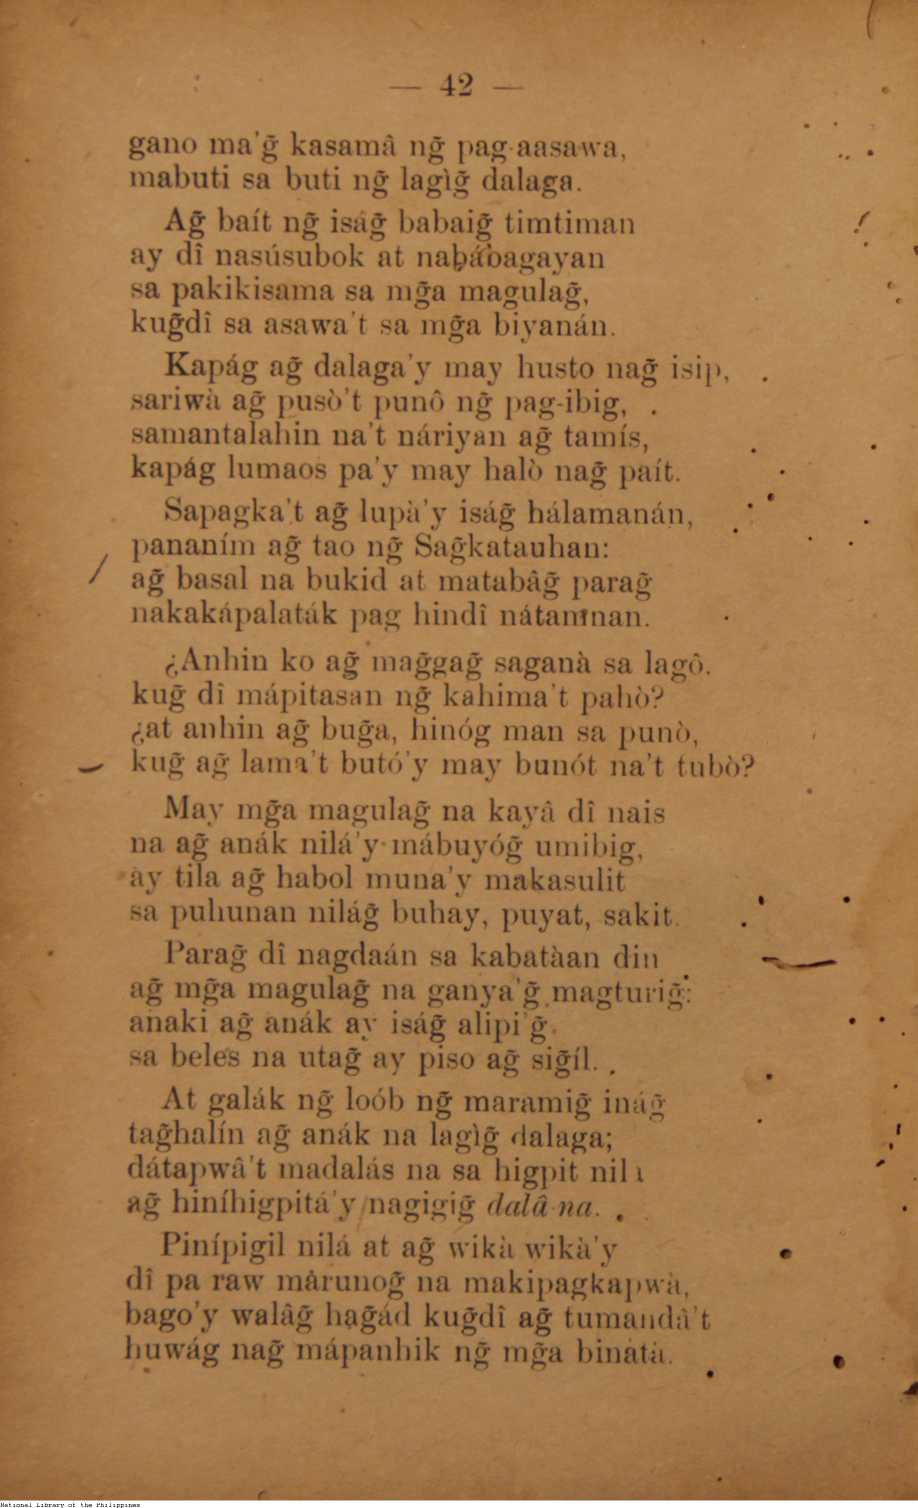 — 42 —
gano ma'g̃ kasamâ ng̃ pag-aasawa,
mabuti sa buti ng̃ lagìg̃ dalaga.
Ag̃ baít ng̃ iság̃ babaig̃ timtiman
ay dî nasúsubok at nabábagayan
sa pakikisama sa mg̃a magulag̃,
kug̃dî sa asawa't sa mg̃a biyanán.
Kapág ag̃ dalaga'y may husto nag̃ isip,
sariwà ag̃ pusò't punô ng̃ pag-ibig,
samantalahin na't náriyan ag̃ tamís,
kapág lumaos pa'y may halò nag̃ paít.
Sapagka't ag̃ lupà'y iság̃ hálamanán,
pananím ag̃ tao ng̃ Sag̃katauhan:
ag̃ basal na bukid at matabâg̃ parag̃
nakakápalaták pag hindî nátamnan.
¿Anhin ko ag̃ mag̃gag̃ saganà sa lagô.
kug̃ dî mápitasan ng̃ kahima't pahò?
¿at anhin ag̃ bug̃a, hinóg man sa punò,
kug̃ ag̃ lama't butó'y may bunót na't tubò?
May mg̃a magulag̃ na kayâ dî nais
na ag̃ anák nilá'y mábuyóg̃ umibig,
ay tila ag̃ habol muna'y makasulit
sa puhunan nilág̃ buhay, puyat, sakit.
Parag̃ dî nagdaán sa kabatàan din
ag̃ mg̃a magulag̃ na ganya'g̃ magturig̃:
anaki ag̃ anák ay iság̃ alipi'g̃
sa beles na utag̃ ay piso ag̃ sig̃íl.
At galák ng̃ loób ng̃ maramig̃ inág̃
tag̃halín ag̃ anák na lagìg̃ dalaga;
dátapwâ't madalás na sa higpit nilá
ag̃ hiníhigpitá'y nagigig̃ dalâ na.
Pinípigil nilá at ag̃ wikà wikà'y
dî pa raw márunog̃ na makipagkapwà,
bago'y walâg̃ hag̃ád kug̃dî ag̃ tumandâ't
huwág nag̃ mápanhik ng̃ mg̃a binatà.
National Library of the Philippines